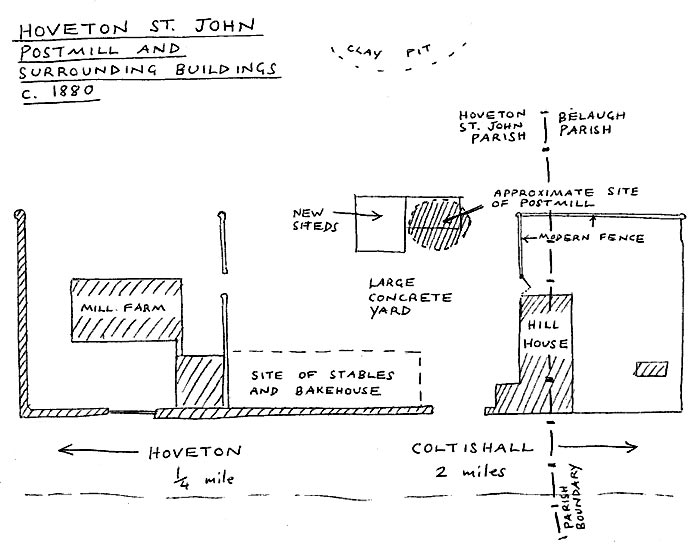 HOVETON ST. JOHN
POSTMILL AND
SURROUNDING BUILDINGS
C. 1880
CLAY PIT
HOVETON
ST. JOHN
PARISH
BELAUGH
PARISH
NEW
SHEDS
APPROXIMATE SITE
OF POSTMILL
MODERN FENCE
LARGE
CONCRETE
YARD
MILL FARM
HILL
HOUSE
SITE OF STABLES
AND BAKEHOUSE
HOVETON
1/4 mile
COLTISHALL
2 miles
PARISH
BOUNDARY